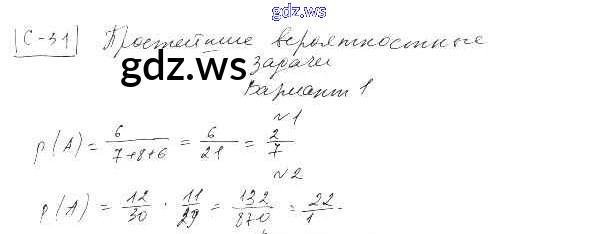 gdz.ws
С-31 Простейшие вероятностные
задачи
gdz.ws
Вариант 1
№1
p(A) = 6/(7+8+6) = 6/21 = 2/7
№2
p(A) = 12/30 · 11/29 = 132/870 = 22/1